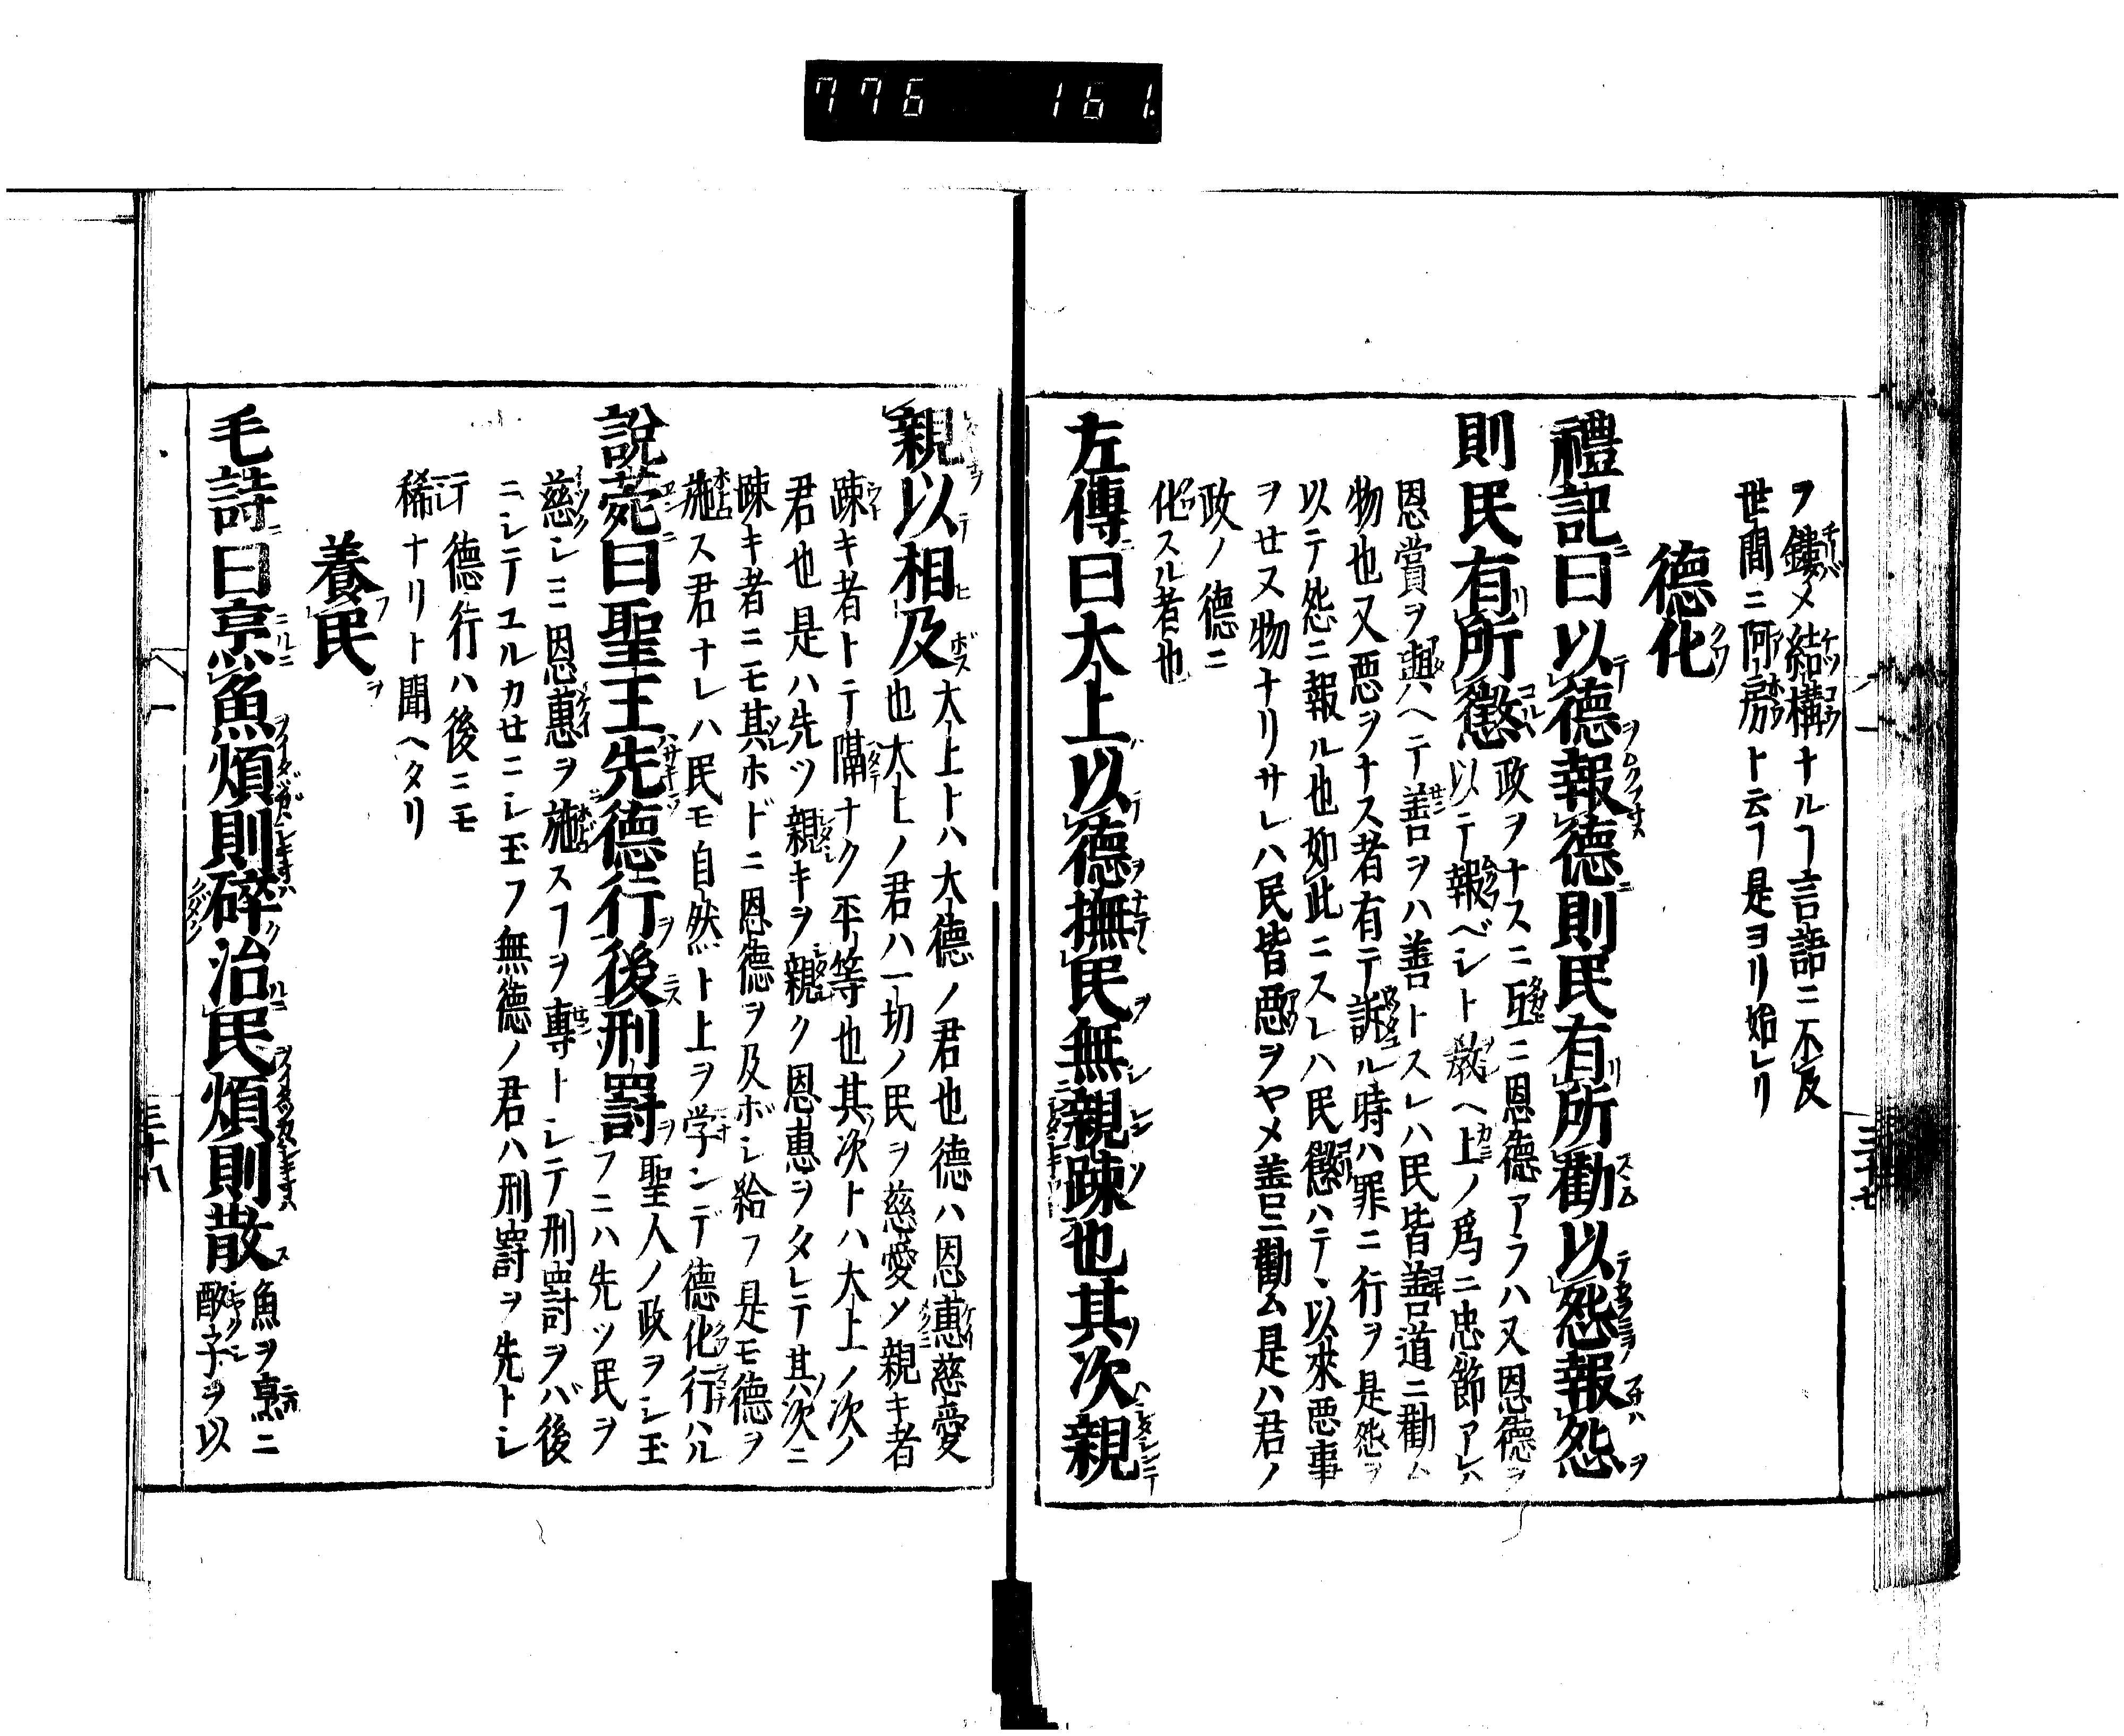 776 161
ヲ鏤メ結構ナルフ言語ニ不及
世間ニ阿房ト云フ是ヨリ始レリ
德化
禮記曰以德報德則民有所勸以怨報怨
則民有所懲政ヲナスニ互ニ恩德アラハ又恩德ヲ
以テ報ベシト教ヘ上ノ爲ニ忠節アレハ
恩賞ヲ與ヘテ善ヲハ善トスレハ民皆善道ニ勸ム
物也又悪ヲナス者有テ訴ル時ハ罪ニ行ヲ是怨ヲ
以テ怨ニ報ル也如此ニスレハ民懲ハテヽ以來悪事
ヲせヌ物ナリサレハ民皆悪ヲヤメ善ニ勸ム是ハ君ノ
政ノ德ニ
化スル者也
左傳曰大上以德撫民無親疎也其次親
親以相及大上トハ大德ノ君也德ハ恩惠慈愛
也大上ノ君ハ一切ノ民ヲ慈愛メ親キ者
疎キ者トテ隔ナク平等也其次トハ大上ノ次ノ
君也是ハ先ツ親キヲ親ク恩惠ヲタレテ其次ニ
疎キ者ニモ其ホドニ恩德ヲ及ボシ給フ是モ德ヲ
施ス君ナレハ民モ自然ト上ヲ学ンデ德化行ハル
說苑曰聖王先德行後刑罰聖人ノ政ヲシ玉
フニハ先ツ民ヲ
慈シミ恩惠ヲ施スフヲ專トシテ刑罰ヲバ後
ニシテユルカせニシ玉フ無德ノ君ハ刑罰ヲ先トシ
テ德行ハ後ニモ
稀ナリト聞ヘタリ
養民
毛詩曰烹魚煩則碎治民煩則散魚ヲ烹ニ
酌子ヲ以
三十七
三十八